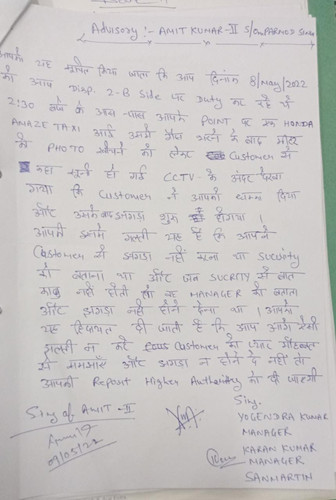 Advisory :- AMIT KUMAR-II S/o PARMOD
आपको यह सूचित किया जाता कि आप दिनांक 8/May/2022
को आप Disp. 2-B Side पर Duty कर रहे थे
2:30 बजे के आस-पास आपके POINT पर एक HONDA
AMAZE TAXI आई उसमें गैस भरने के बाद मीटर
की PHOTO खींचने को लेकर Customer से
कहा सुनी हो गई CCTV के अंदर देखा
गया कि Customer ने आपको धक्का दिया
और उसके बाद झगड़ा शुरू हो गया।
आपकी इसमें गलती यह है कि आपने
Customer से झगड़ा नहीं करना था Sucurity
को बताना था और जब SUCRITY से बात
नहीं होती तो यह MANAGER को बताता
और झगड़ा नहीं होने देना था। आपको
यह हिदायत दी जाती है कि आप आगे ऐसी
गलती न करें Customer को प्यार
से समझाएं और झगड़ा न होने दे नहीं तो
आपकी Report Higher Authority को दी जाएगी
Sing of AMIT-II
09/05/22
Sing.
YOGENDRA KUMAR
MANAGER
KARAN KUMAR
MANAGER
SANMARTIN